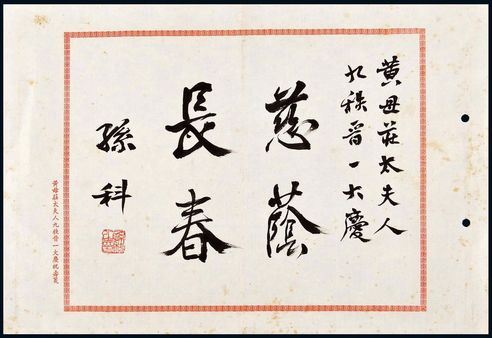 黃母莊太夫人
九秩晉一大慶
慈蔭
長春
孫科
黃母莊太夫人九秩晉一大慶祝壽箋